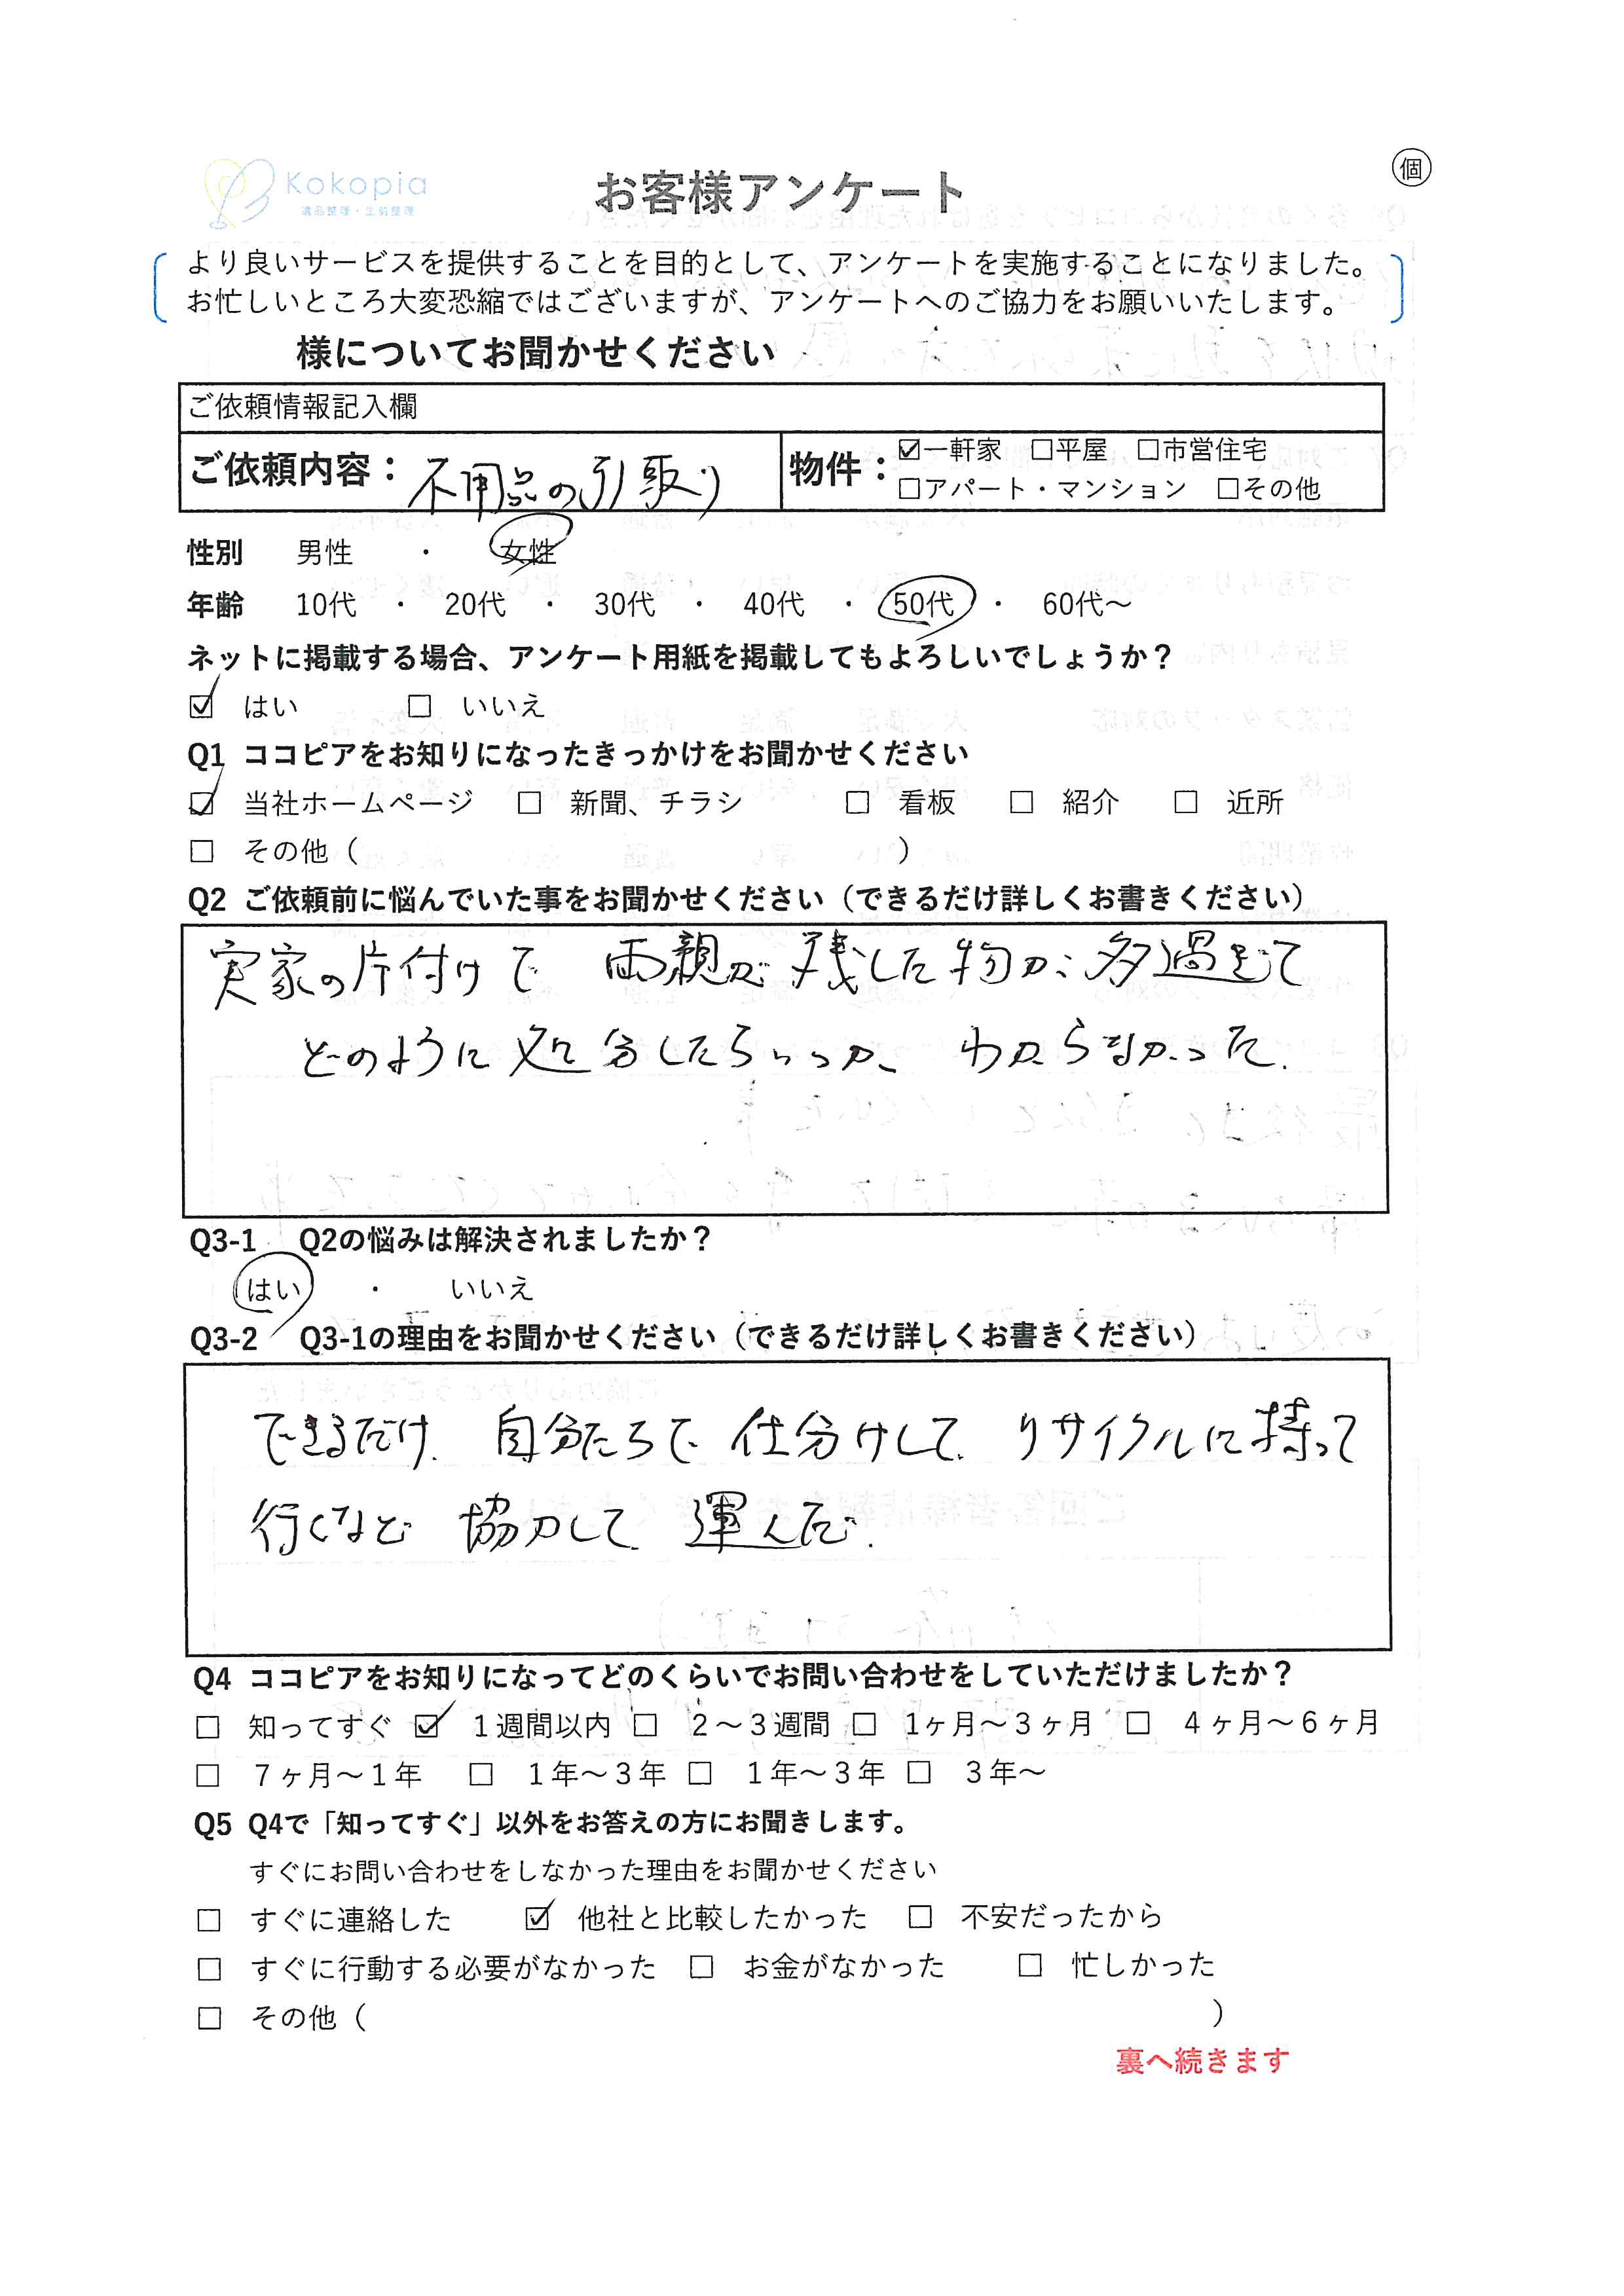 Kokopia
遺品整理・生前整理
お客様アンケート
個
より良いサービスを提供することを目的として、アンケートを実施することになりました。
お忙しいところ大変恐縮ではございますが、アンケートへのご協力をお願いいたします。
様についてお聞かせください
ご依頼情報記入欄
ご依頼内容：不用品の引取り
物件：☑一軒家 □平屋 □市営住宅
□アパート・マンション □その他
性別 男性 ・ 女性
年齢 10代 ・ 20代 ・ 30代 ・ 40代 ・ 50代 ・ 60代～
ネットに掲載する場合、アンケート用紙を掲載してもよろしいでしょうか？
☑ はい □ いいえ
Q1 ココピアをお知りになったきっかけをお聞かせください
☑ 当社ホームページ □ 新聞、チラシ □ 看板 □ 紹介 □ 近所
□ その他（ ）
Q2 ご依頼前に悩んでいた事をお聞かせください（できるだけ詳しくお書きください）
実家の片付けで 両親が残した物が多過ぎて
どのように処分したらいいか、わからなかった.
Q3-1 Q2の悩みは解決されましたか？
はい ・ いいえ
Q3-2 Q3-1の理由をお聞かせください（できるだけ詳しくお書きください）
できるだけ、自分たちで仕分けして、リサイクルに持って
行くなど 協力して 運んだ.
Q4 ココピアをお知りになってどのくらいでお問い合わせをしていただけましたか？
□ 知ってすぐ ☑ １週間以内 □ ２～３週間 □ 1ヶ月～３ヶ月 □ ４ヶ月～６ヶ月
□ ７ヶ月～１年 □ １年～３年 □ １年～３年 □ ３年～
Q5 Q4で「知ってすぐ」以外をお答えの方にお聞きします。
すぐにお問い合わせをしなかった理由をお聞かせください
□ すぐに連絡した ☑ 他社と比較したかった □ 不安だったから
□ すぐに行動する必要がなかった □ お金がなかった □ 忙しかった
□ その他（ ）
裏へ続きます